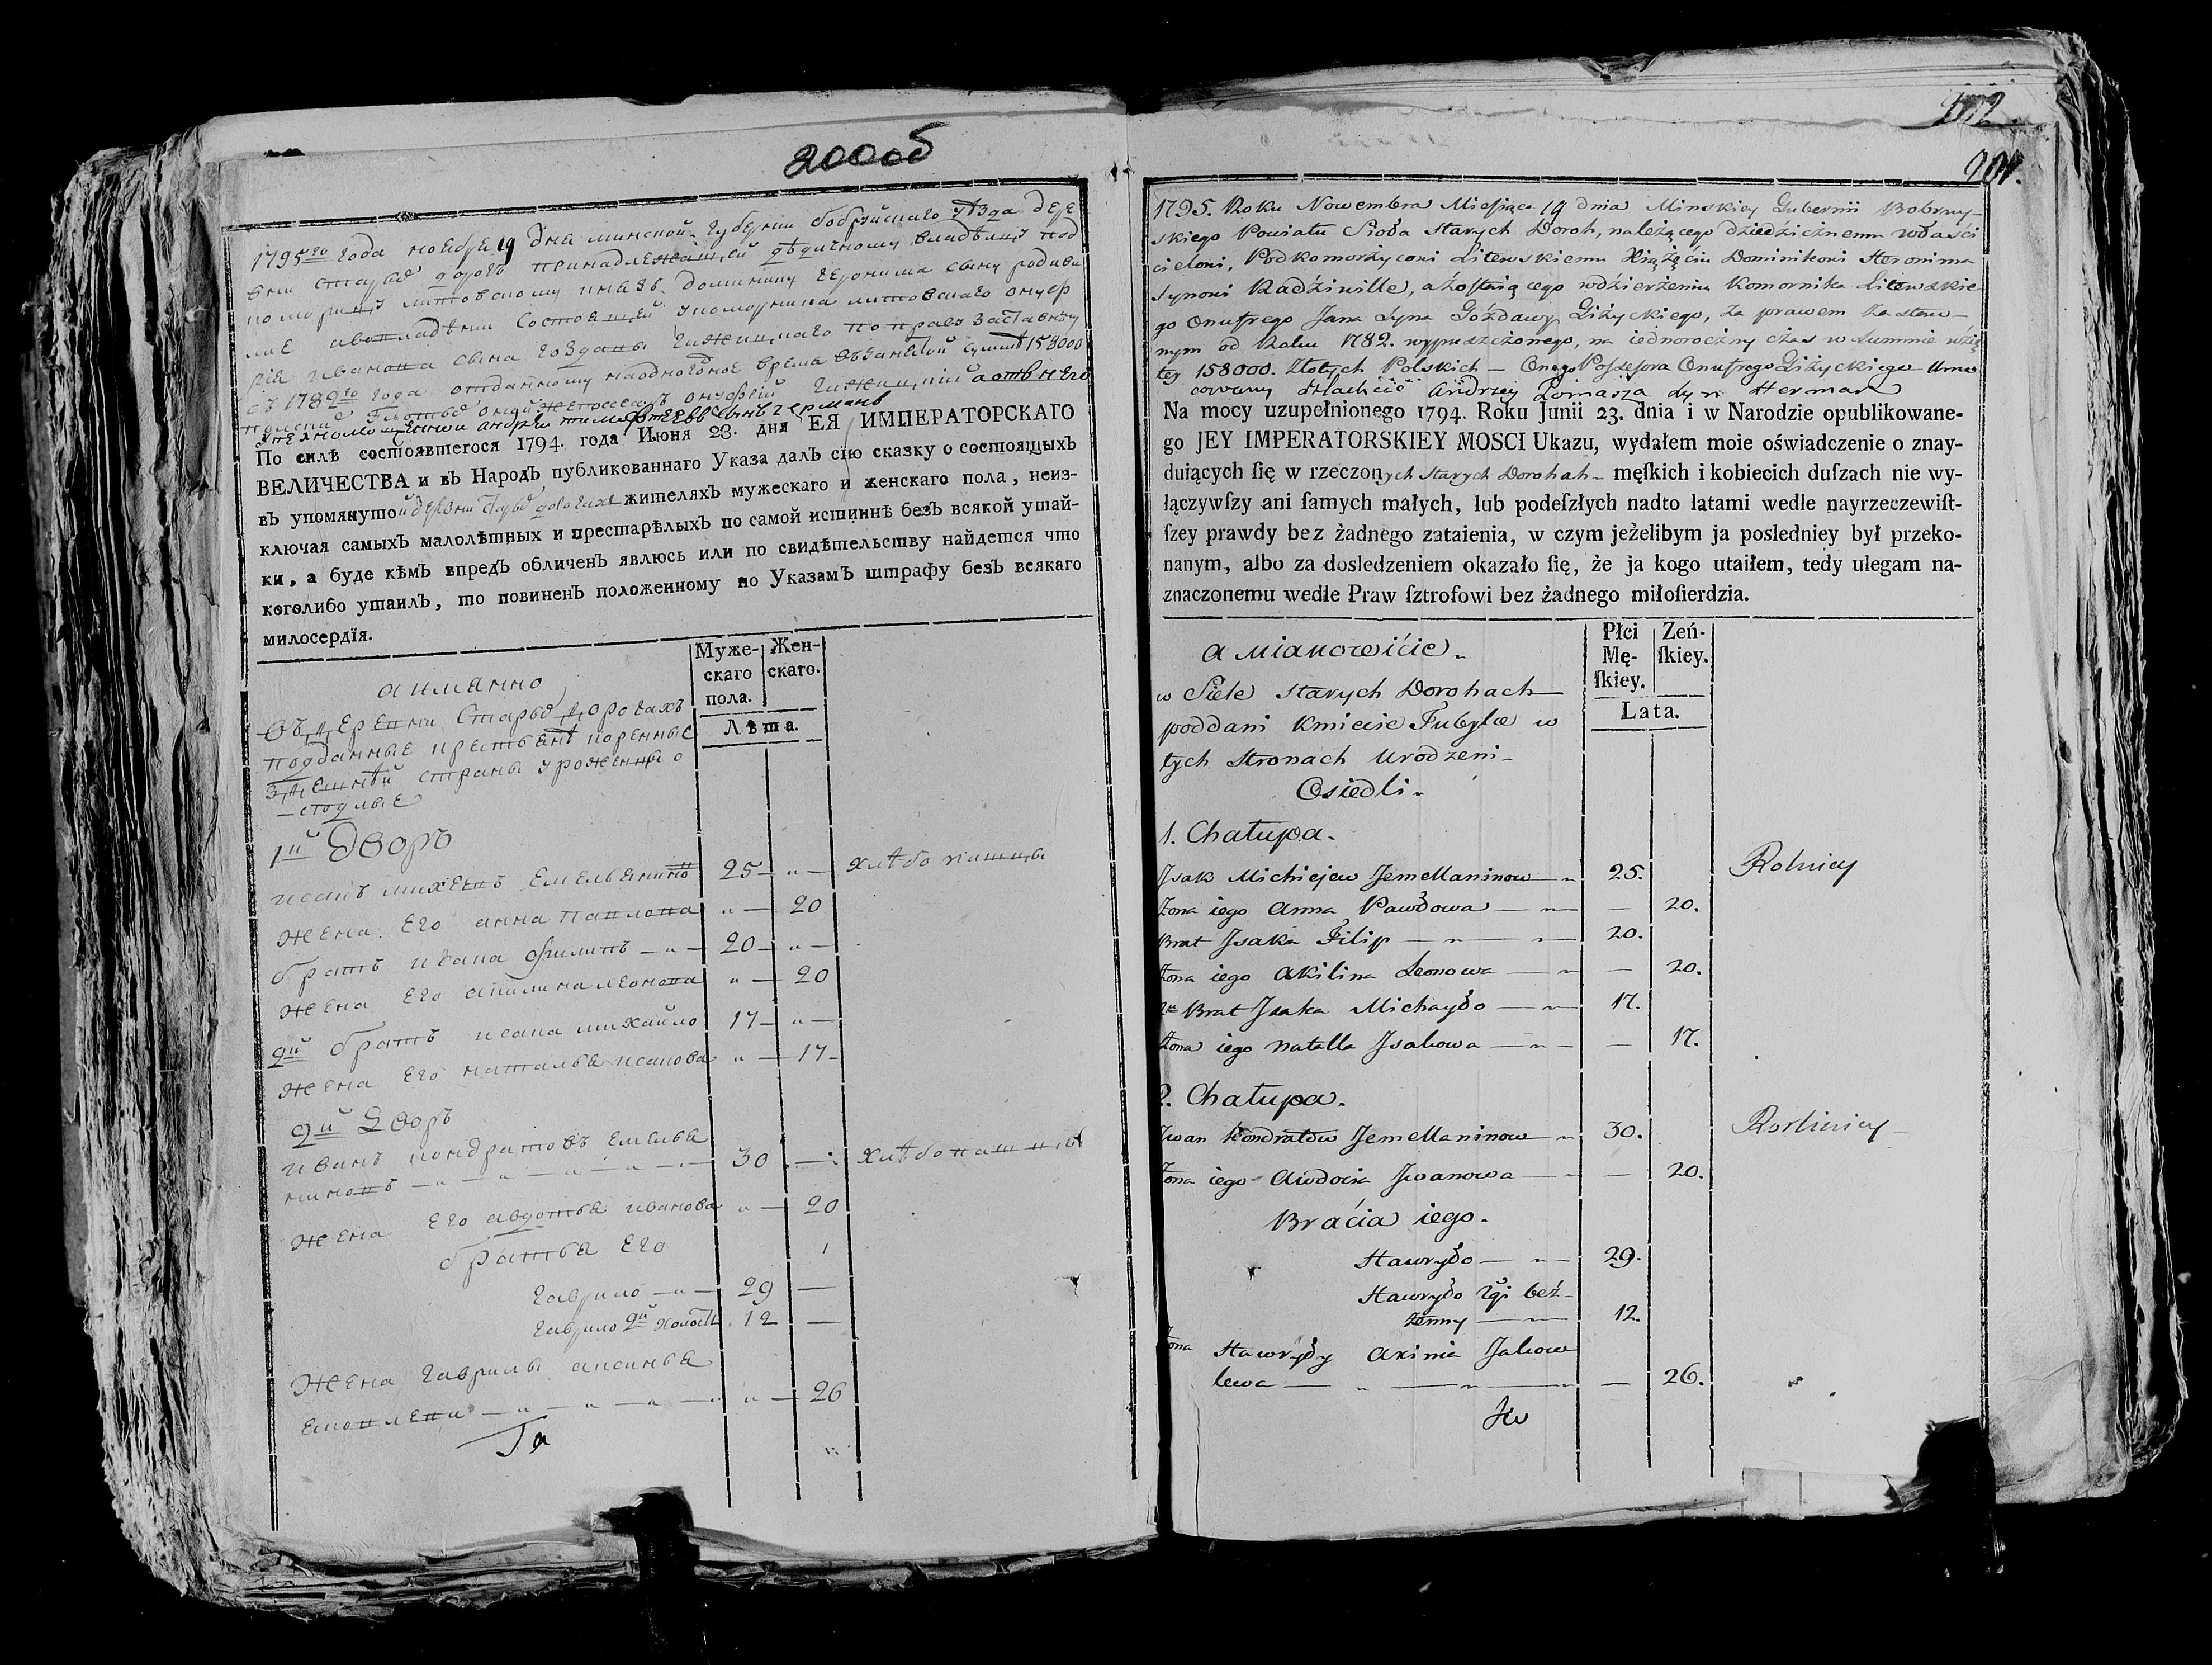 200об
1795го года ноября 19 дня минской губернии бобруйскаго уѣзда дере
вни старыхъ дорогъ принадлежащей дѣдичному владѣлцу под
коморцу литовскому князь доминику геронима сыну радиви
лле авовладѣни состоящей укоморника литовскаго онуф
рія иванова сына гозданы гижицкаго по праву заставному
съ 1782го года отданному наодногодное время взятой суммѣ 158000
онуфрій гижицкій
андрей сынъ германъ
По силѣ состоявшегося 1794. года Июня 23. дня ЕЯ ИМПЕРАТОРСКАГО
ВЕЛИЧЕСТВА и въ Народъ публикованнаго Указа далъ сїю сказку о состоящыхъ
въ упомянутой деревни старыхъ дорогахъ жителяхъ мужескаго и женскаго пола, неиз-
ключая самыхъ малолѣтныхъ и престарѣлыхъ по самой истиннѣ безъ всякой утай-
ки, а буде кѣмъ впредъ обличенъ явлюсь или по свидѣтельству найдется что
коголибо утаилъ, то повиненъ положенному по Указамъ штрафу безъ всякаго
милосердїя.
Муже-
скаго
пола.
Жен-
скаго.
Лѣта.
а имянно
Въ деревни Старыхъ дорогахъ
подданные крестьянѣ коренные
здѣшнѣй страны уроженцы о
седлые
1й Дворъ
исакъ михеевъ емельянино 25 — „ — хлѣбопашцы
жена его анна павлова „ — 20
братъ исака филипъ — „ — 20 — „ —
жена его акилина леонова „ — 20
2й братъ исака михайло 17 — „ —
жена его наталья исакова „ — 17 —
2й Дворъ
иванъ кондратовъ емелья
ниновъ — „ — „ — „ — 30 — хлѣбопашцы
жена его авдотья иванова „ — 20
братья его
гаврило — „ — 29 —
гаврило 2й холост. 12 —
жена гаврилы аксинья
— „ — „ — „ — 26
Га
202
201.
1795. Roku Nowembra Miesiąca 19 dnia Minskiey Gubernii Bobruy-
skiego Powiatu Sioła Starych Doroh, należącego dziedzicznemu właści
cielowi, Podkomorzyconi Litewskiemu Xiążęciu Dominikowi Heronima
Synowi Radziwille, a zostaiącego wdzierżeniu Komornika Litewskie-
go Onufrego Jana Syna Gozdawy Giżyckiego, za prawem zastaw-
nym od Roku 1782. wypuszczonego, na iednoroczny czas w Summie wzię
tey 158000. Złotych Polskich — Onego Possesora Onufrego Giżyckiego Umo
cowany Szlachcic Andrzey Tomasza Syn Herman
Na mocy uzupełnionego 1794. Roku Junii 23. dnia i w Narodzie opublikowane-
go JEY IMPERATORSKIEY MOSCI Ukazu, wydałem moie oświadczenie o znay-
duiących ſię w rzeczonych Starych Dorohah — męſkich i kobiecich duſzach nie wy-
łączywſzy ani ſamych małych, lub podeſzłych nadto latami wedle nayrzeczewiſt-
ſzey prawdy bez żadnego zataienia, w czym jeżelibym ja posledniey był przeko-
nanym, albo za dosledzeniem okazało ſię, że ja kogo utaiłem, tedy ulegam na-
znaczonemu wedle Praw ſztrofowi bez żadnego miłoſierdzia.
Płci
Mę-
ſkiey.
Zeń-
ſkiey.
Lata.
a mianowićie —
w Siele Starych Dorohach —
poddani Kmiecie Tubylce w
tych Stronach Urodzeni —
Osiedli —
1. Chałupa.
Jsak Michiejew Jemellaninow — „ 25. Rolnicy
Żona iego Anna Pawłowa — „ — — 20.
Brat Jsaka Filip — „ — „ 20.
Żona iego Akilina Leonowa — „ — 20.
2gi Brat Jsaka Michayło — „ 17.
Żona iego Natalla Jsakowa — „ — — 17.
2. Chałupa.
Jwan Kondratow Jemellaninow — „ 30. Rolnicy —
Żona iego Awdocia Jwanowa — — 20.
Braćia iego.
Hawryło — „ — 29.
Hawryło 2gi beź-
żenny — „ — 12.
Żona Hawryły Axinia Jakow
lewa — „ — „ — „ — 26.
Ha